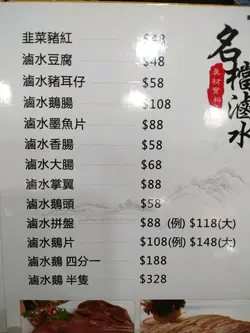 名檔滷水
真材實料
韭菜豬紅 $48
滷水豆腐 $48
滷水豬耳仔 $58
滷水鵝腸 $108
滷水墨魚片 $88
滷水香腸 $58
滷水大腸 $68
滷水掌翼 $88
滷水鵝頭 $58
滷水拼盤 $88 (例) $118(大)
滷水鵝片 $108(例) $148(大)
滷水鵝 四分一 $188
滷水鵝 半隻 $328